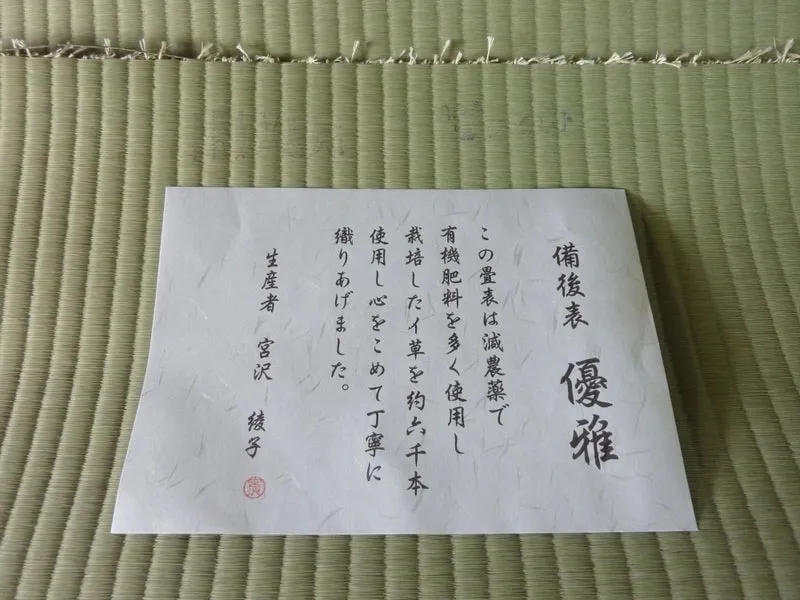 備後表 優雅
この畳表は減農薬で
有機肥料を多く使用し
栽培したイ草を約六千本
使用し心をこめて丁寧に
織りあげました。
生産者 宮沢 綾子